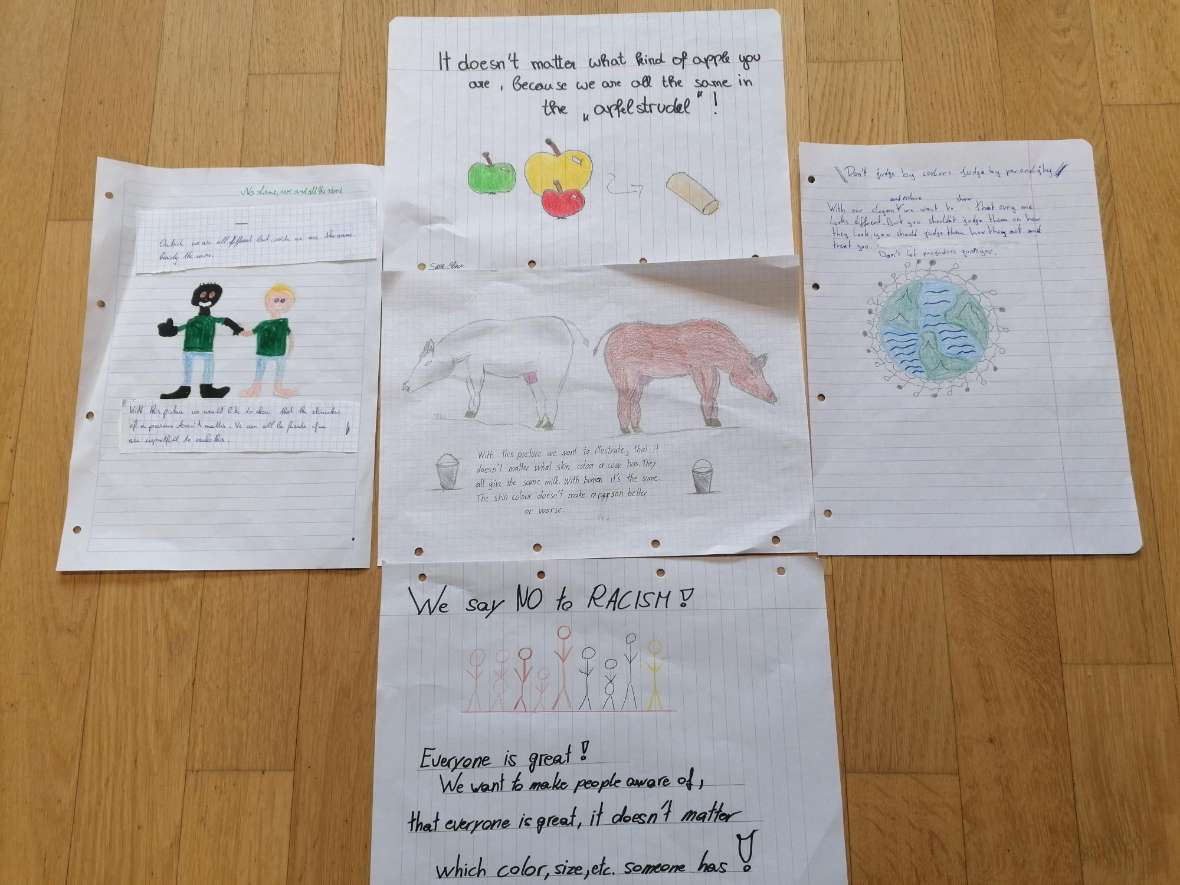 It doesn't matter what kind of apple you
are, Because we are all the same in
the „apfelstrudel" !
we are all the same
Outside we are all different but inside we are the same
the same.
With this picture we would like to show that the
of a person doesn't matter. We can all be friends if we
are
With this picture we want to illustrate, that it
doesn't matter what skin colour a cow has. They
all give the same milk. With human it's the same.
The skin colour doesn't make a person better
or worse.
Don't judge by colour judge by
With our slogan we want to show that every one
looks different. But you shouldn't judge them on how
they look you should judge them how they act and
treat you.
Don't let
We say NO to RACISM!
Everyone is great!
We want to make people aware of,
that everyone is great, it doesn't matter
which color, size, etc. someone has!